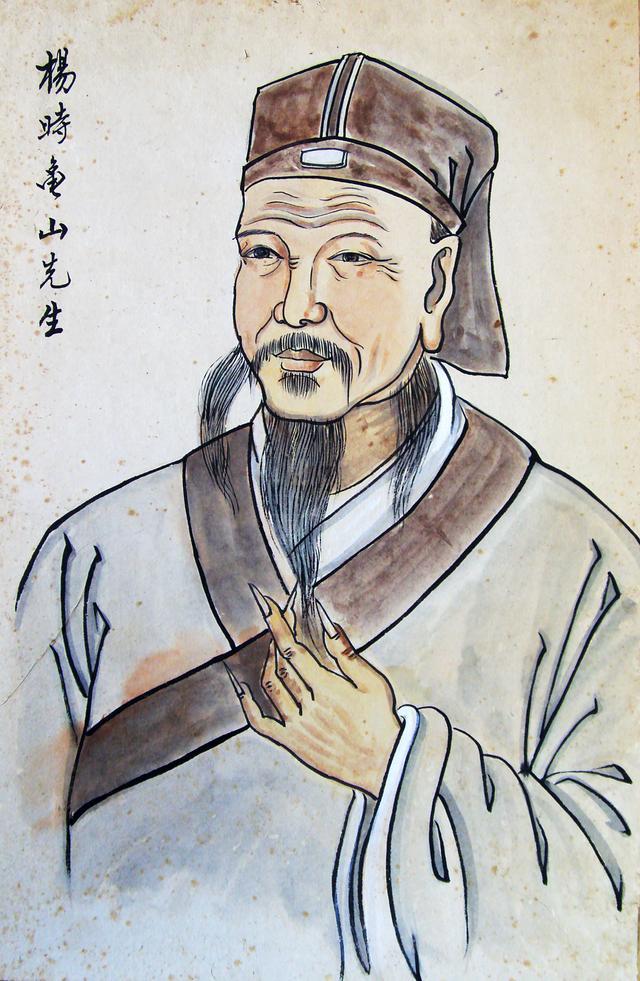 楊時龜山先生